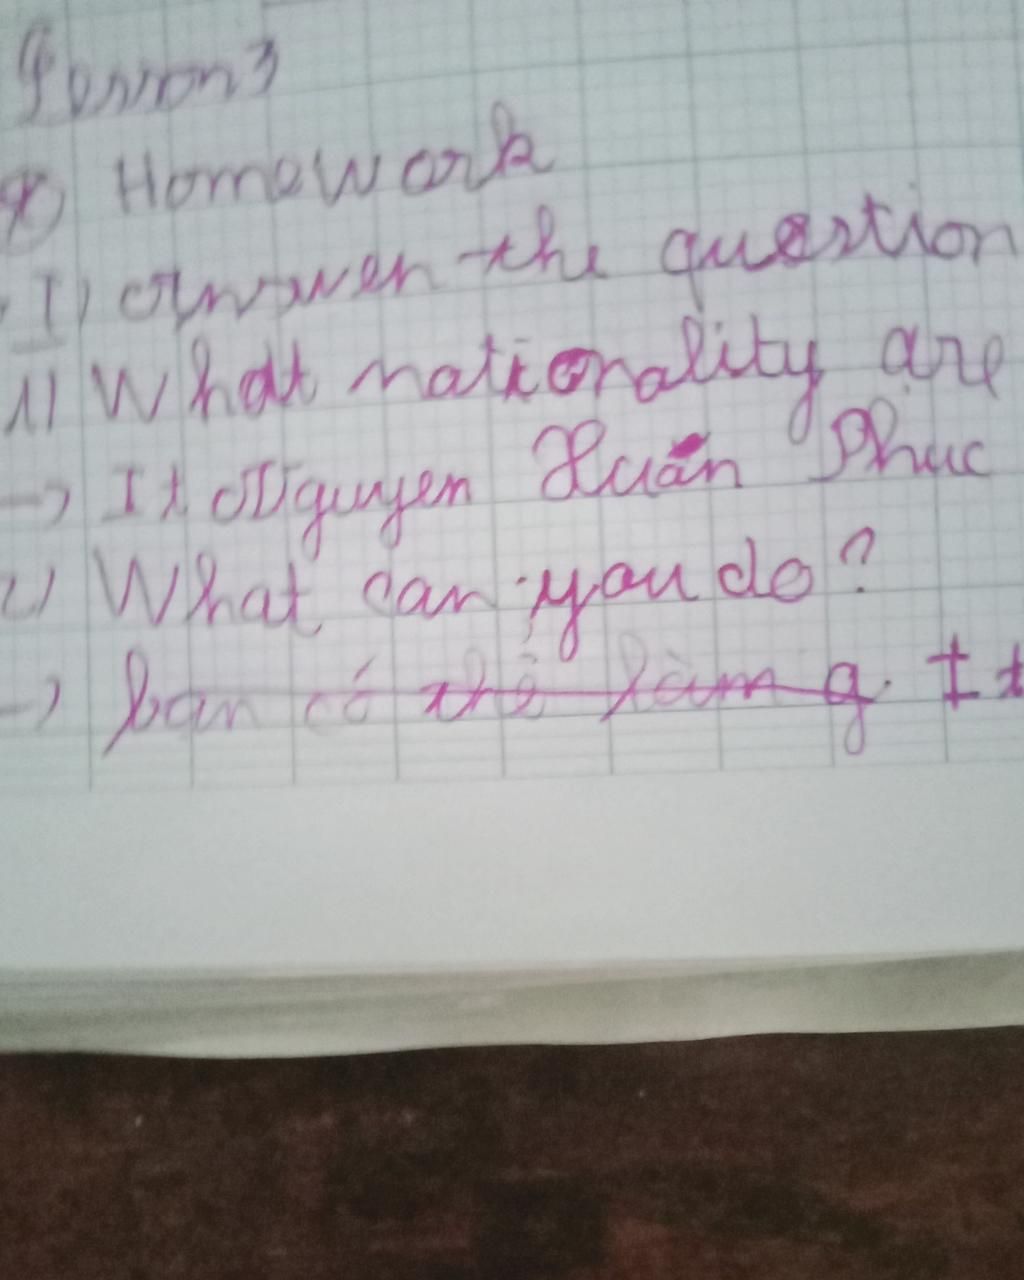 Lesson 3
* Homework
I) Answer the question
1) What nationality are
→ It Nguyen Xuân Phuc
2) What can you do?
→ bạn có thể làm g. It